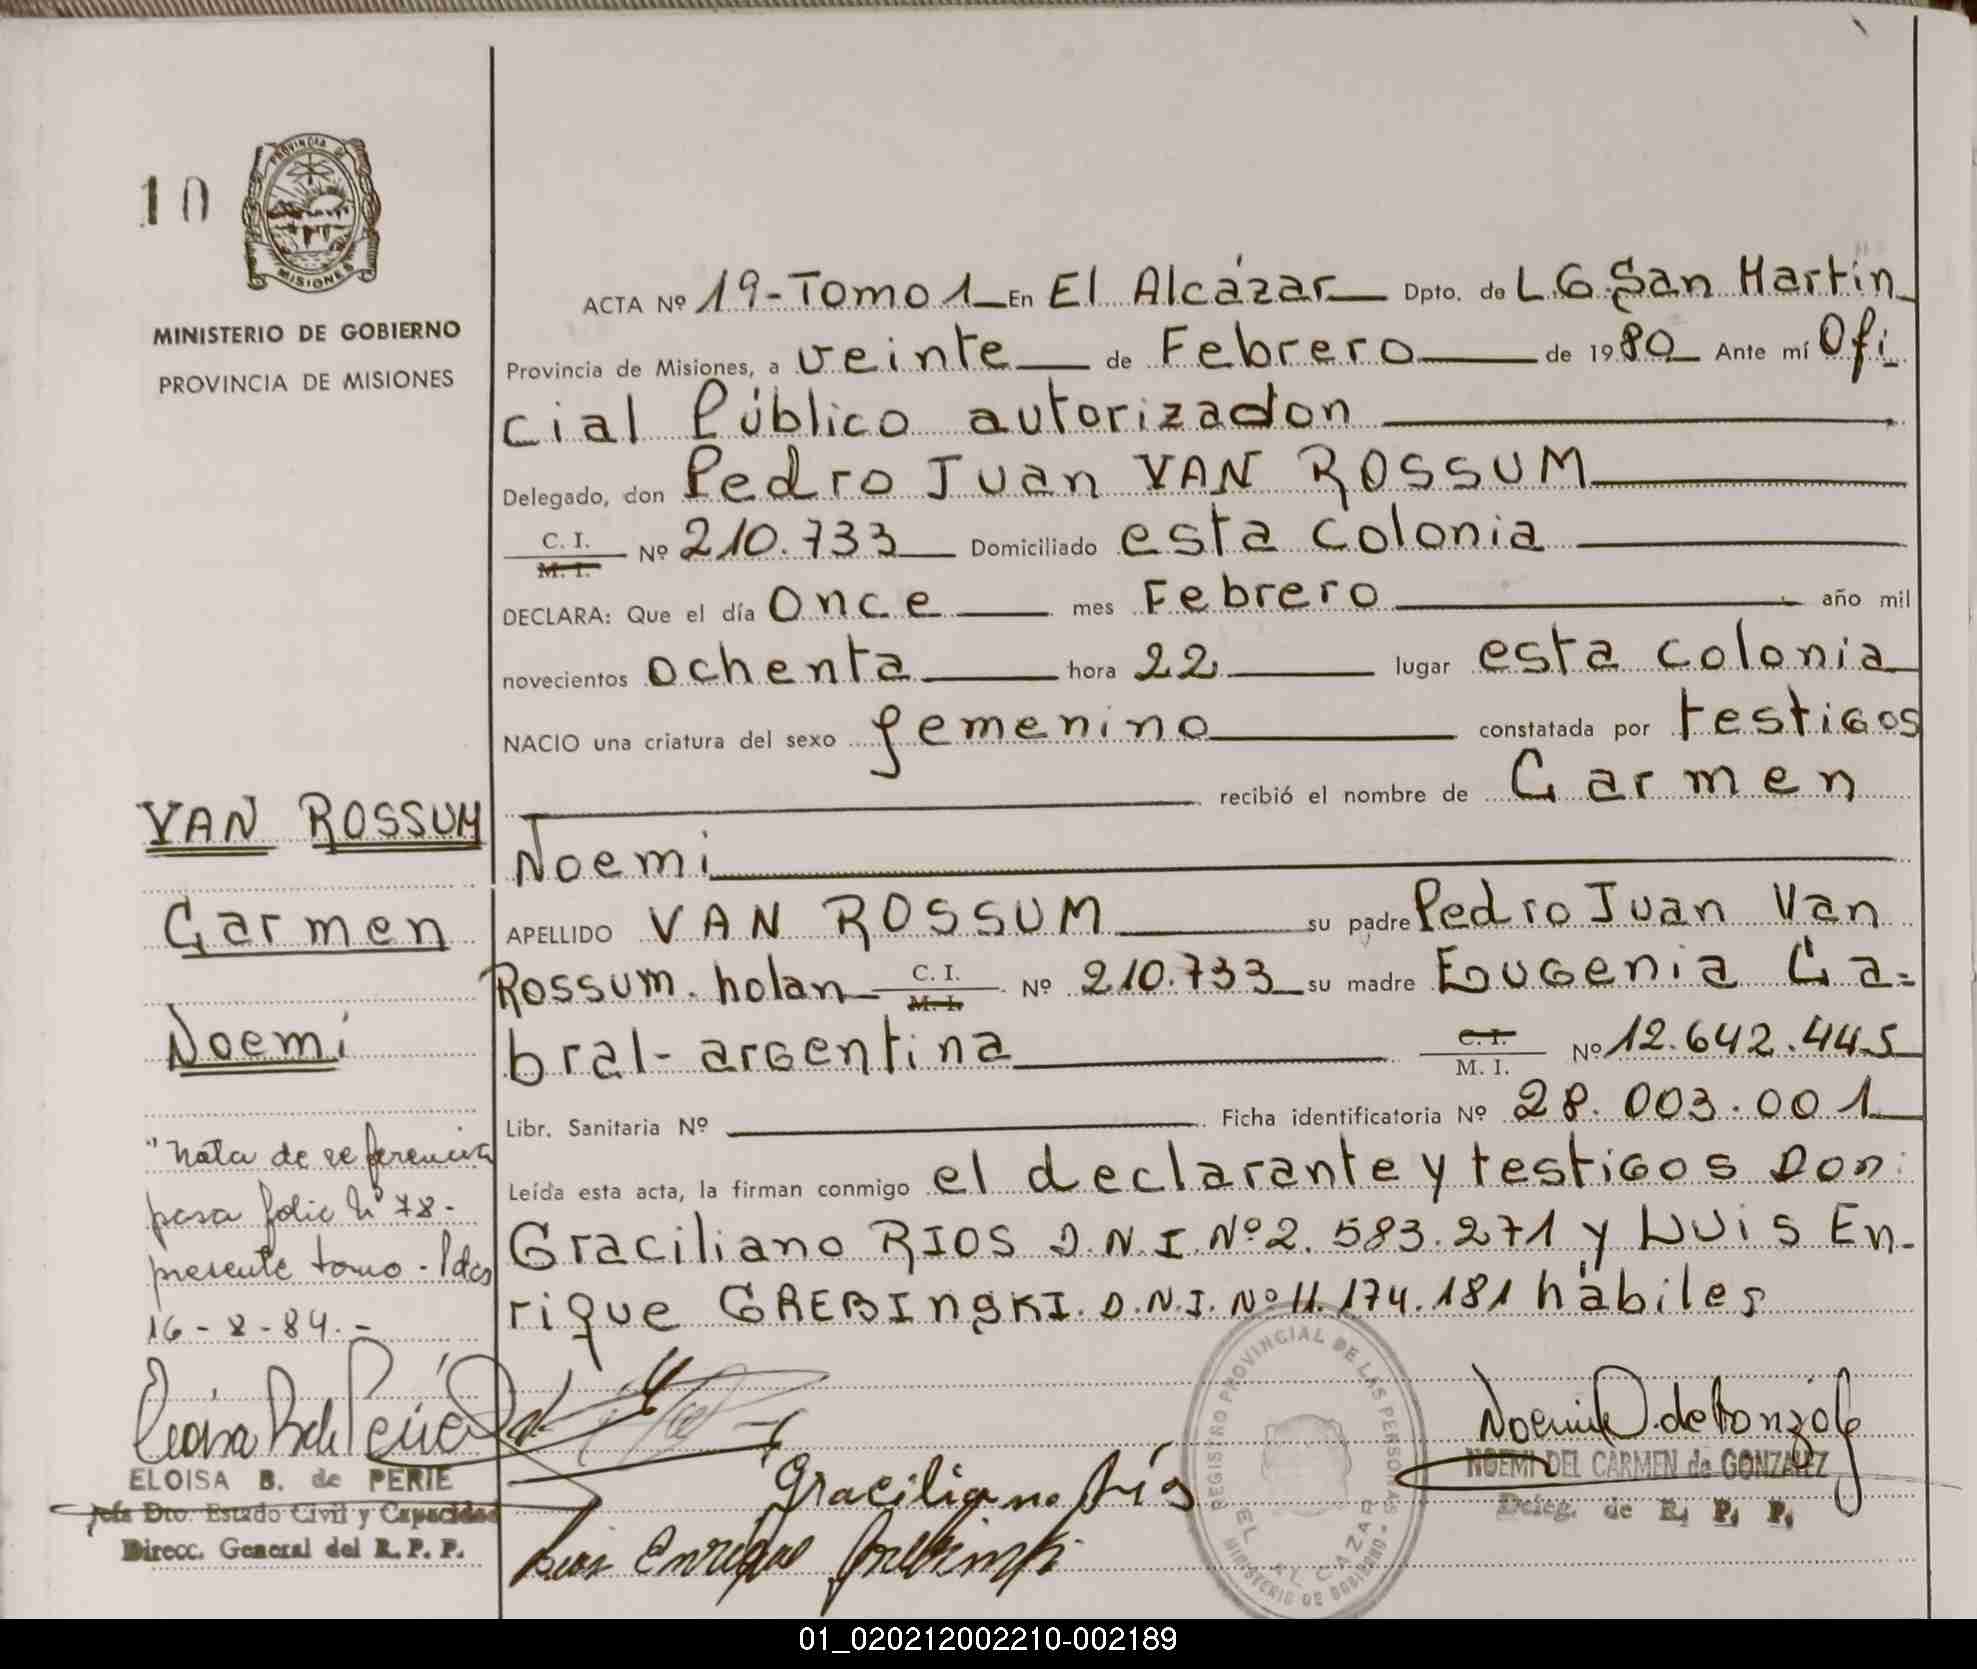 10
PROVINCIA DE
MISIONES
MINISTERIO DE GOBIERNO
PROVINCIA DE MISIONES
ACTA Nº 19-Tomo 1 En El Alcázar Dpto. de L.G.San Martín
Provincia de Misiones, a veinte de Febrero de 1980 Ante mí Ofi
cial Público autorizadon
Delegado, don Pedro Juan VAN ROSSUM
C. I. M. I. Nº 210.733 Domiciliado esta colonia
DECLARA: Que el día once mes Febrero año mil
novecientos ochenta hora 22 lugar esta colonia
NACIO una criatura del sexo femenino constatada por testigos
recibió el nombre de Carmen
Noemi
APELLIDO VAN ROSSUM su padre Pedro Juan Van
Rossum. holan C. I. M. I. Nº 210.733 su madre Eugenia Ca=
bral- argentina C. I. M. I. Nº 12.642.445
Libr. Sanitaria Nº Ficha identificatoria Nº 28.003.001
Leída esta acta, la firman conmigo el declarante y testigos Don
Graciliano RIOS D.N.I.Nº2.583.271 y Luis En-
rique GREBINSKI. D.N.I. Nº 11.174.181 hábiles
VAN ROSSUM
Carmen
Noemí
"Nota de referencia
pasa folio Nº 78-
presente tomo - Pdas
16-8-84.-
ELOISA B. de PERIE
Jefa Dto. Estado Civil y Capacidad
Direcc. General del R. P. P.
Graciliano Ríos
Luis Enrique Grebinski
REGISTRO PROVINCIAL DE LAS PERSONAS
EL ALCAZAR
MINISTERIO DE GOBIERNO
Noemi D. de Gonzalez
NOEMI DEL CARMEN de GONZALEZ
Deleg. de R. P. P.
01_020212002210-002189